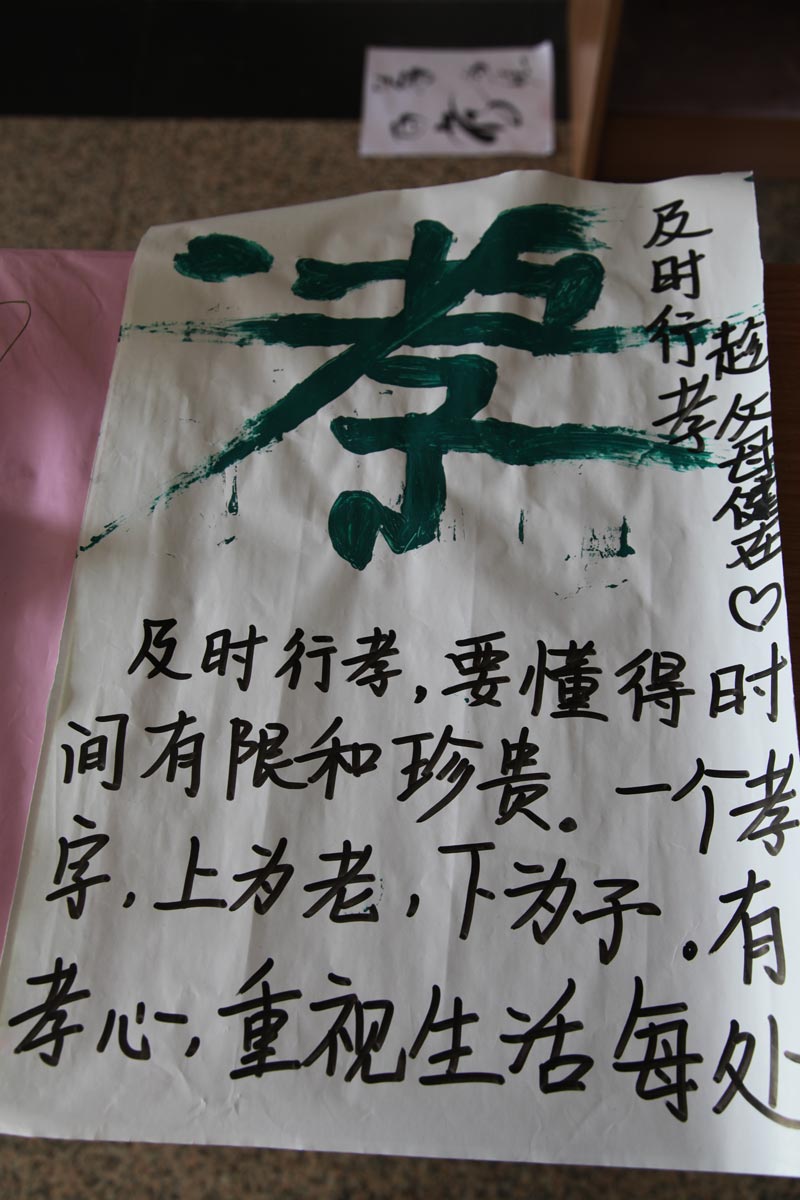 孝
及时行孝
趁父母健在♡
及时行孝,要懂得时
间有限和珍贵.一个孝
字,上为老,下为子.有
孝心,重视生活每处